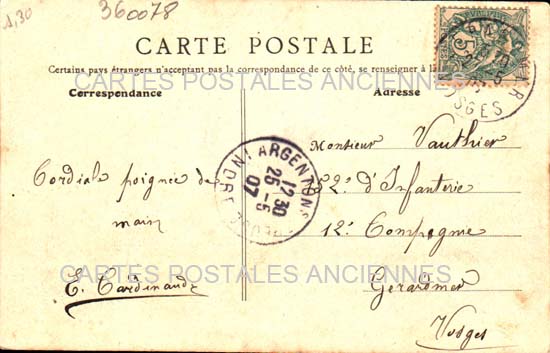 1,30
360078
CARTE POSTALE
Certains pays étrangers n'acceptant pas la correspondance de ce côté, se renseigner à la
CARTES POSTALES ANCIENNES
Correspondance
Adresse
Cordiale poignée de
main
E. Cardinaud
ARGENTON-S
12 30
25 - 5
07
INDRE
Monsieur Vauthier
152e d'Infanterie
12e Compagnie
Gerardmer
Vosges
CARTES POSTALES ANCIENNES
VOSGES